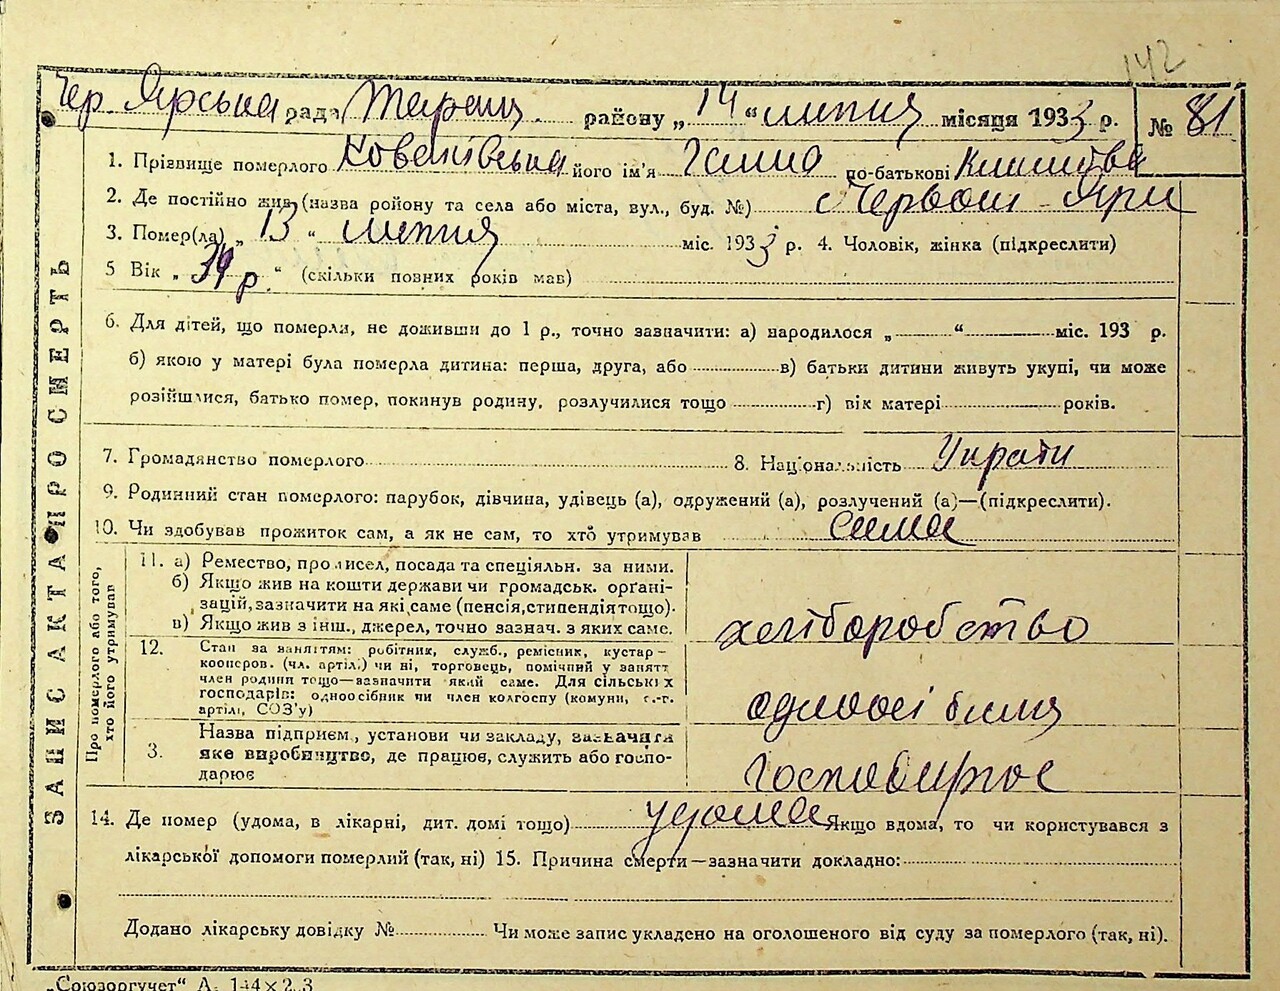 142
Чер. Ярська рада Таращ. району „14“ липня місяця 1933 р. № 81
1. Прізвище померлого його ім'я Ганна по-батькові
2. Де постійно жив (назва ройону та села або міста, вул., буд. №) Червоні-Яри
3. Помер(ла) „13“ липня міс. 1933 р. 4. Чоловік, жінка (підкреслити)
5 Вік „39 р.“ (скільки повних років мав)
6. Для дітей, що померли, не доживши до 1 р., точно зазначити: а) народилося „ “ міс. 193 р.
б) якою у матері була померла дитина: перша, друга, або в) батьки дитини живуть укупі, чи може
розійшлися, батько помер, покинув родину, розлучилися тощо г) вік матері років.
7. Громадянство померлого 8. Національність
9. Родинний стан померлого: парубок, дівчина, удівець (а), одружений (а), розлучений (а)—(підкреслити).
10. Чи здобував прожиток сам, а як не сам, то хто утримував сама
ЗАПИС АКТА ПРО СМЕРТЬ
Про померлого або того, хто його утримував
11. а) Ремество, промисел, посада та спеціяльн. за ними.
б) Якщо жив на кошти держави чи громадськ. орґані-
зацій, зазначити на які саме (пенсія, стипендія тощо).
в) Якщо жив з інш., джерел, точно зазнач. з яких саме.
хліборобство
12. Стан за заняттям: робітник, служб., ремісник, кустар-
кооперов. (чл. артілі) чи ні, торговець, помічний у занятт
член родини тощо—зазначити який саме. Для сільських
господарів: одноосібник чи член колгоспу (комуни, с.-г.
артілі, СОЗ'у)
3. Назва підприєм., установи чи закладу, зазначити
яке виробництво, де працює, служить або госпо-
дарює
14. Де помер (удома, в лікарні, дит. домі тощо) удома Якщо вдома, то чи користувався з
лікарської допомоги померлий (так, ні) 15. Причина смерти—зазначити докладно:
Додано лікарську довідку № Чи може запис укладено на оголошеного від суду за померлого (так, ні).
„Союзоргучет“ А. 144×2 3